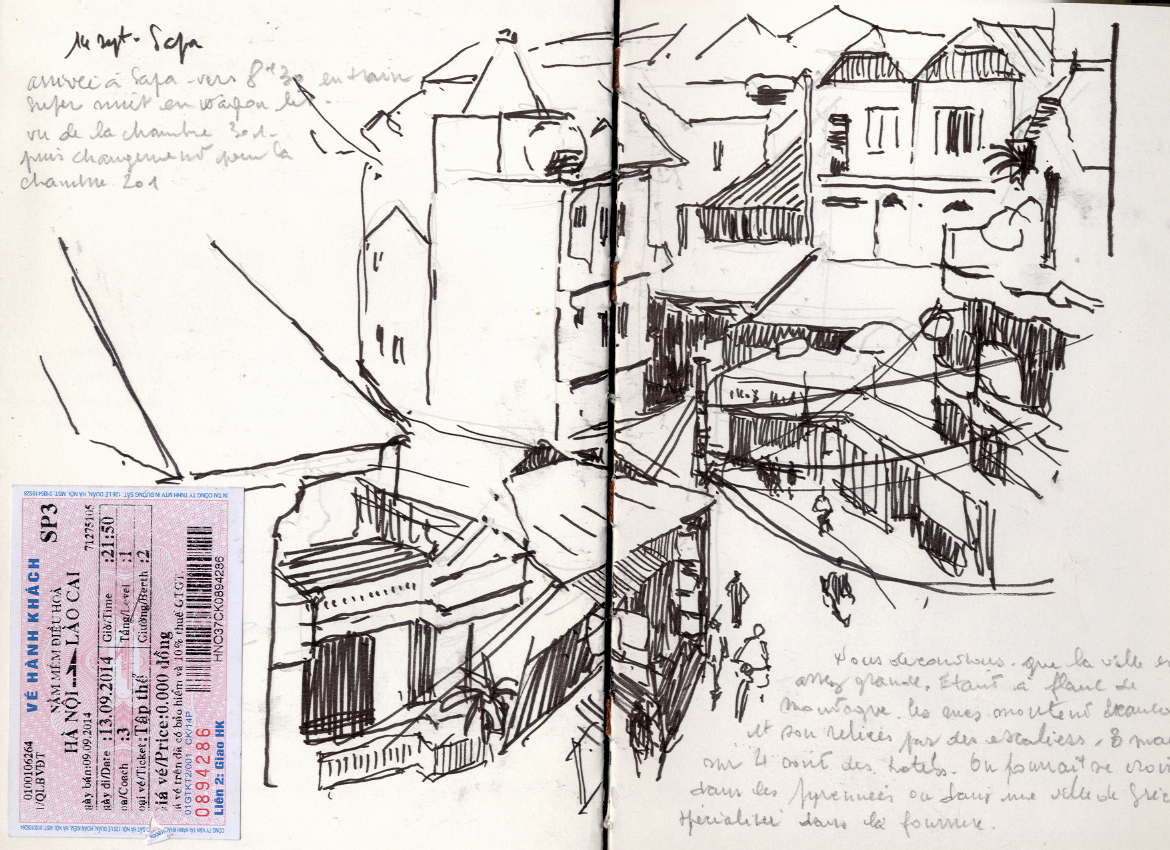 14 sept - Sapa
arrivée à Sapa vers 8h30 en train
super nuit en wagon lit.
vu de la chambre 301.
puis changement pour la
chambre 201
VÉ HÀNH KHÁCH
NẰM MỀM ĐIỀU HOÀ
SP3
HÀ NỘI LÀO CAI
0100106264
71275105
/QLBVĐT
gày bán:09.09.2014
gày đi/Date :13.09.2014 Giờ/Time :21:50
oa/Coach :3 Tầng/Level :1
oại vé/Ticket :Tập thể Giường/Berth :2
iá vé/Price:0.000 đồng
á vé trên đã có bảo hiểm và 10% thuế GTGT
01GTKT2/001 CK/14P
HNC37CK0894286
0894286
Liên 2: Giao HK
Nous découvrons que la ville es
assez grande. Etant à flanc de
montagne les rues montent
et son reliées par des escaliers. 3 mai
sur 4 sont des hotels. On pourrait se croi
dans les pyrennées ou dans une ville de Grèc
spécialisée dans la fourrure.